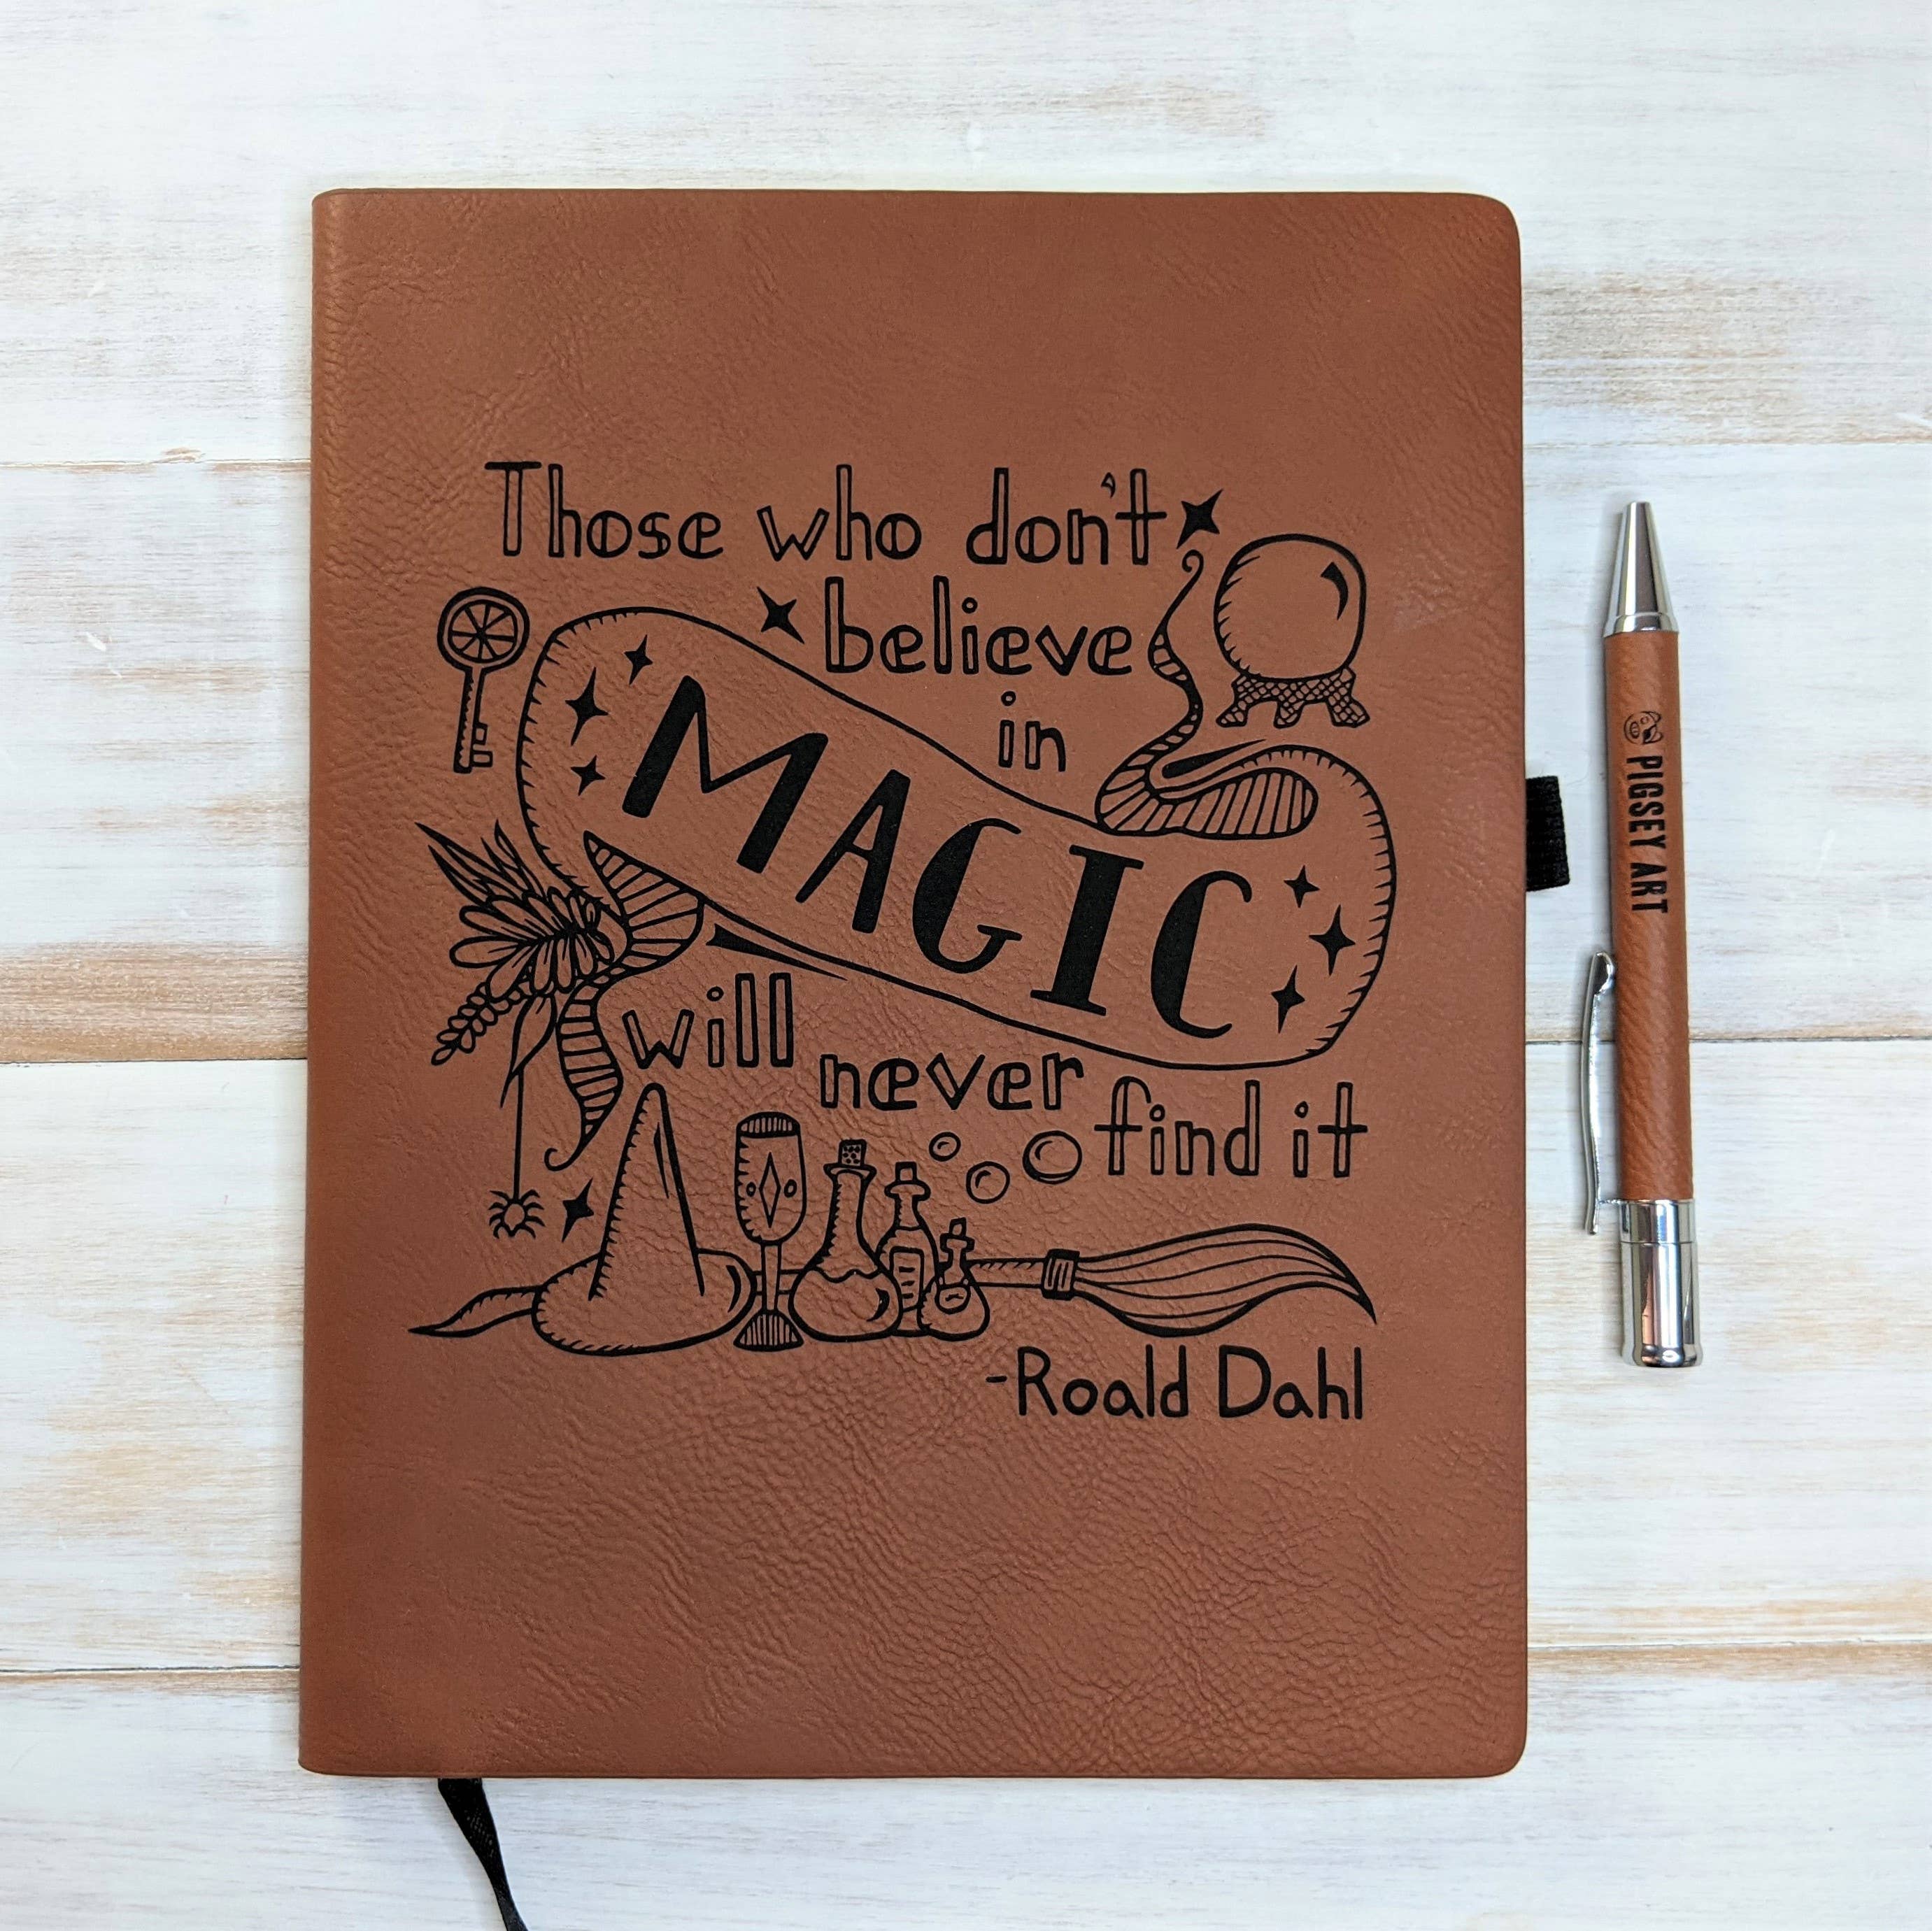 Those who don't
believe
in
MAGIC
will never find it
-Roald Dahl
PIGSEY ART